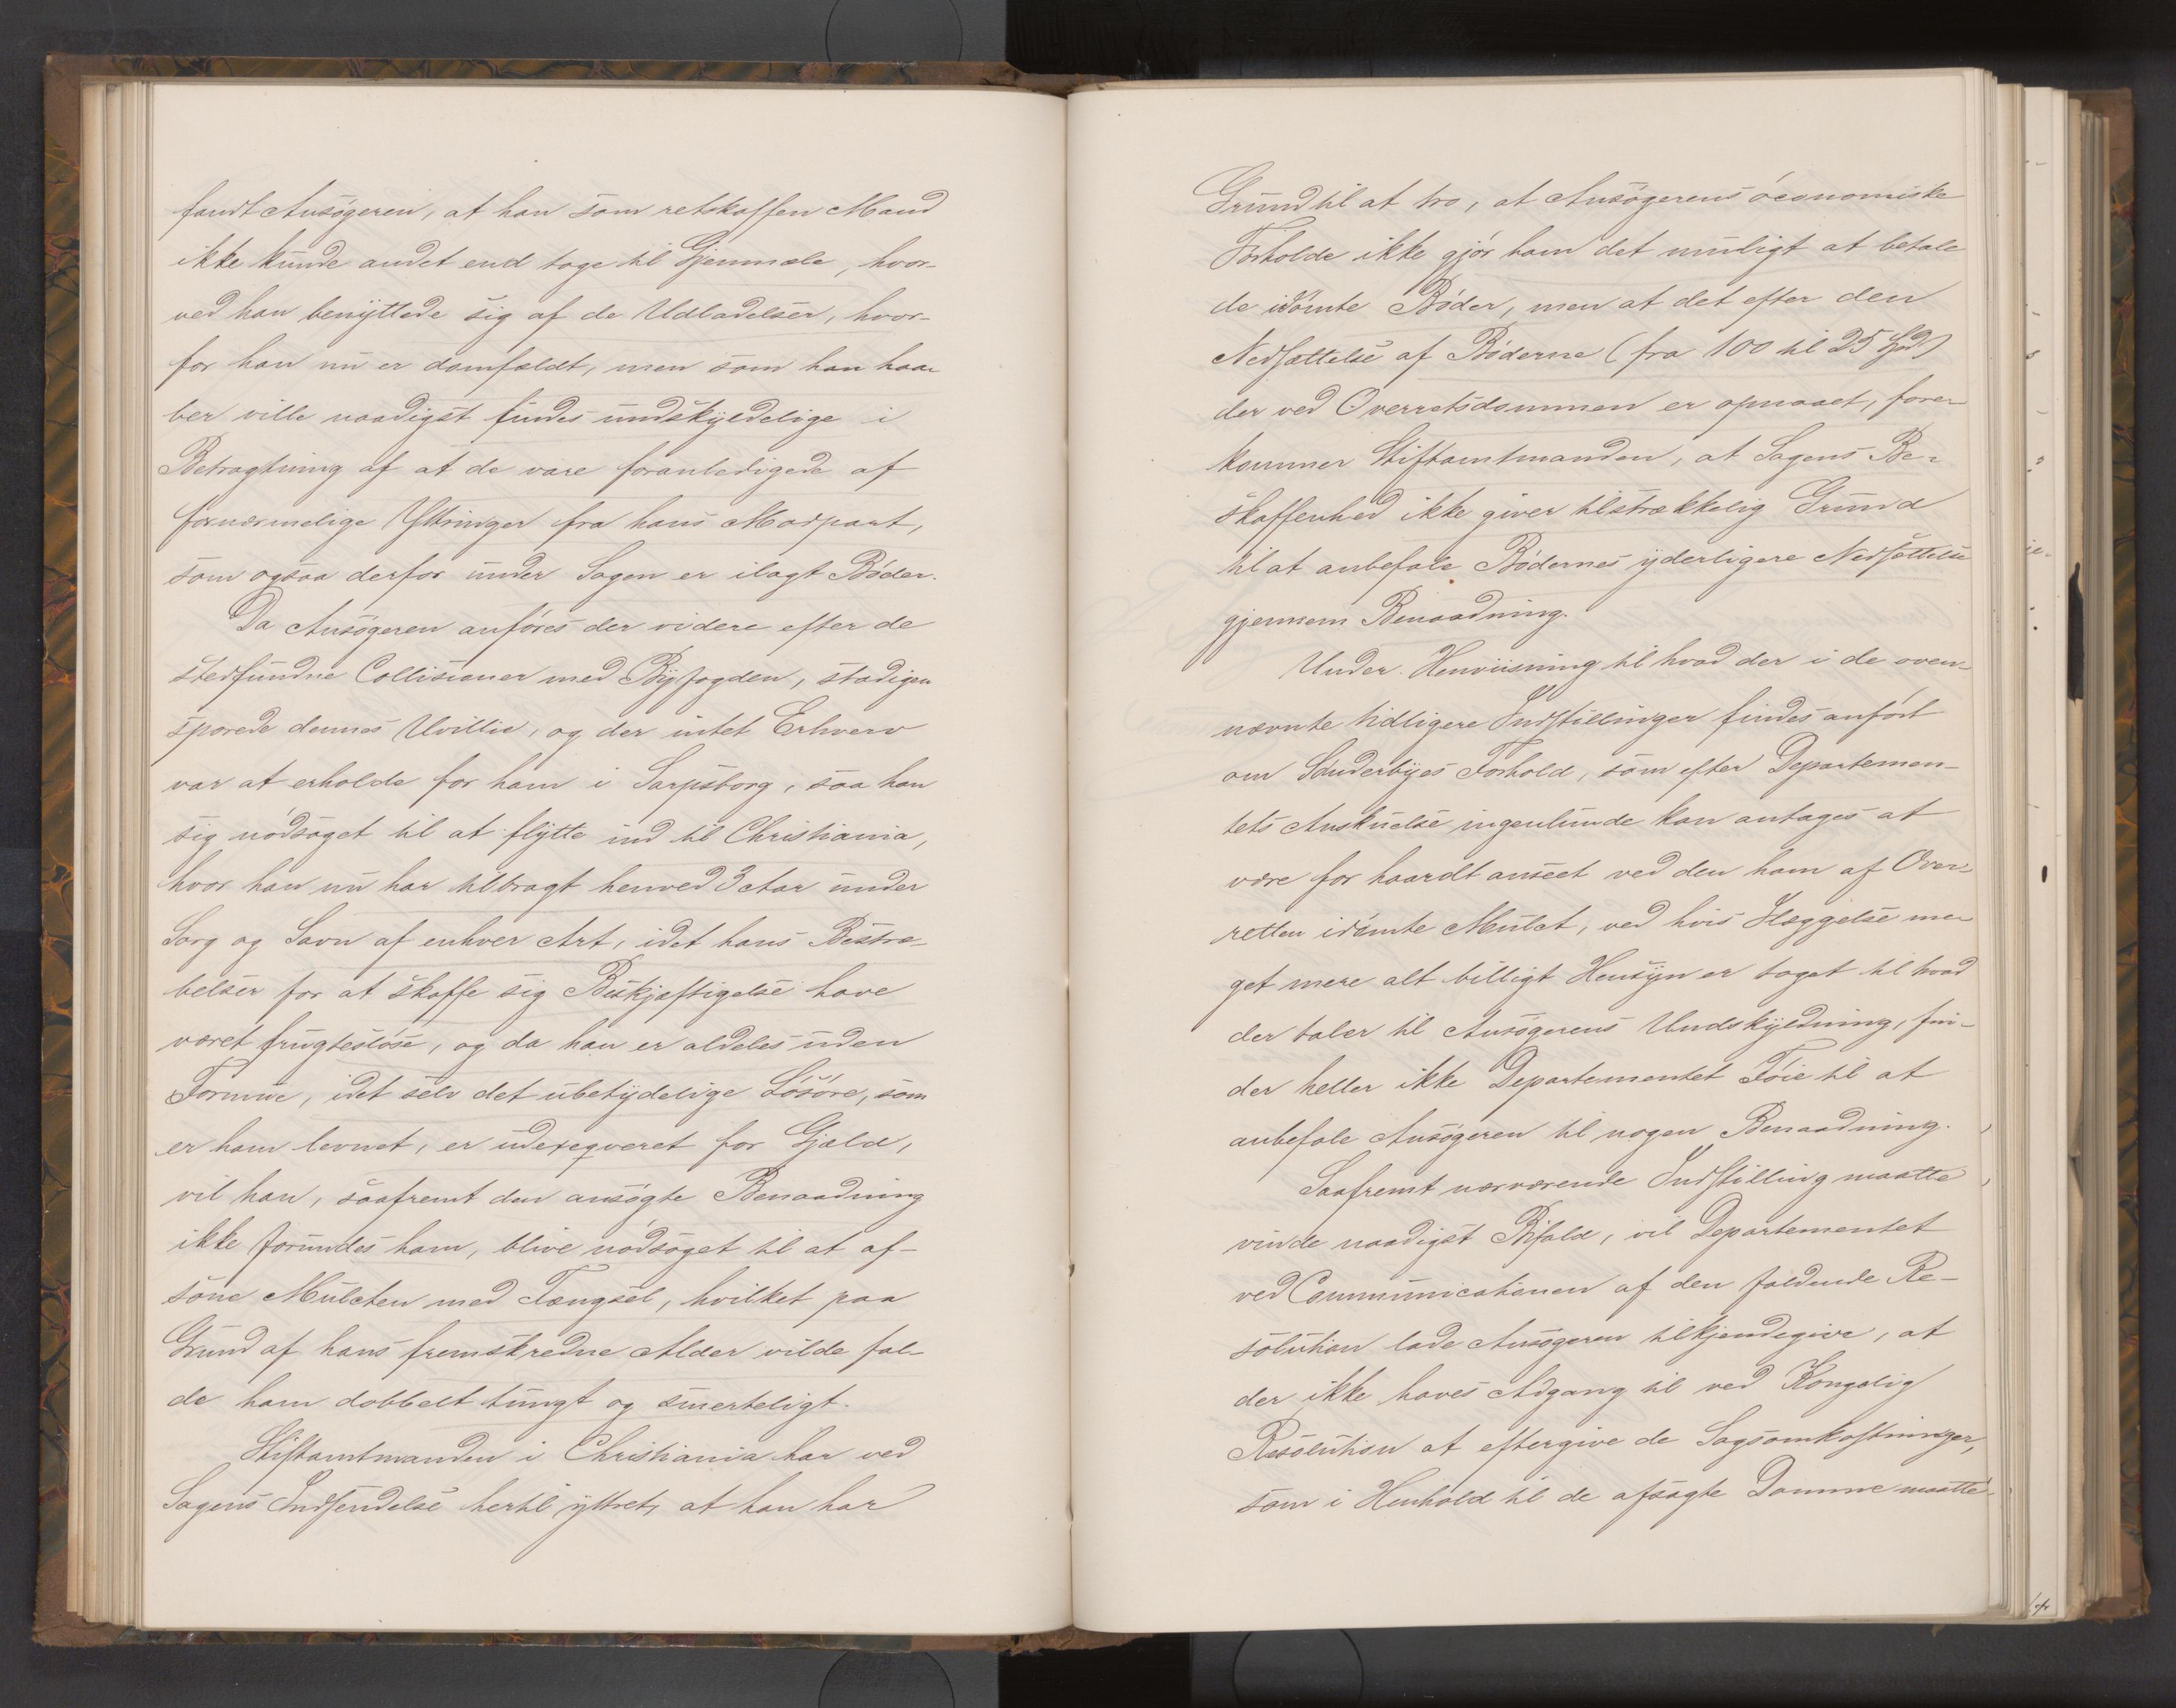 fandt Ansøgeren, at han som retskaffen Mand
ikke kunde andet end tage til Gjenmæle, hvor-
ved han benyttede sig af de Udladelser, hvor-
for han nu er domfældt, men som han haa-
ber ville naadigst findes undskyldelige i
Betragtning af at de vare foranledigede af
fornærmelige Yttringer fra hans Modpart,
som ogsaa derfor under Sagen er ilagt Bøder.
Da Ansøgeren anføres der videre efter de
stedfundne Collisioner med Byfogden, stadigen
sporede dennes Uvillie, og der intet Erhverv
var at erholde for ham i Sarpsborg, saa han
sig nødsaget til at flytte ind til Christiania,
hvor han nu har tilbragt henved 3 Aar under
Sorg og Savn af enhver Art, idet hans Bestræ-
belser for at skaffe sig Beskjæftigelse have
været frugtesløse, og da han er aldeles uden
Formue, idet selv det ubetydelige Løsøre, som
er ham levnet, er udexeqveret for Gjæld,
vil han, saafremt den ansøgte Benaadning
ikke forundes ham, blive nødsaget til at af-
sone Mulcten med Fængsel, hvilket paa
Grund af hans fremskredne Alder vilde fal-
de ham dobbelt tungt og smerteligt.
Stiftamtmanden i Christiania har ved
Sagens Indsendelse hertil yttret, at han har
Grund til at tro, at Ansøgerens øconomiske
Forholde ikke gjør ham det muligt at betale
de idømte Bøder, men at det efter den
Nedsættelse af Bøderne (fra 100 til 25 Spd)
der ved Overretsdommen er opnaaet, fore-
kommer Stiftamtmanden, at Sagens Be-
skaffenhed ikke giver tilstrækkelig Grund
til at anbefale Bødernes yderligere Nedsættelse
gjennem Benaadning.
Under Henviisning til hvad der i de oven-
nævnte tidligere Indstillinger findes anført
om Sønderbyes Forhold, som efter Departemen-
tets Anskuelse ingenlunde kan antages at
være for haardt anseet ved den ham af Over-
retten idømte Mulct, ved hvis Ilæggelse me-
get mere alt billigt Hensyn er taget til hvad
der taler til Ansøgerens Undskyldning, fin-
der heller ikke Departementet Føie til at
anbefale Ansøgeren til nogen Benaadning.
Saafremt nærværende Indstilling maatte
vinde naadigst Bifald, vil Departementet
ved Communicationen af den faldende Re-
solution lade Ansøgeren tilkjendegive, at
der ikke haves Adgang til ved Kongelig
Resolution at eftergive de Sagsomkostninger,
som i Henhold til de afsagte Domme maatte